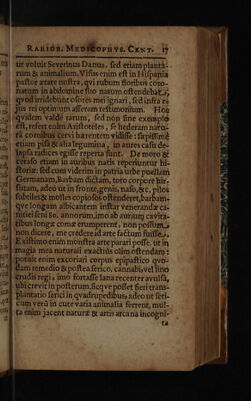 RARIOR. MEDICOPHYS. CENT. 17
ut voluit Severinus Danus, sed etiam planta-
rum & animalium. Visus enim est in Hispania
pastor ætate nostra, qui rubum floribus coro-
natum in abdomine suo natum ostendebat,
quod irridebunt osores mei ignari, sed infra e-
jus rei optimum afferam testimonium. Hoc
quidem valdè rarum, sed non sine exemplo
est, refert enim Aristoteles, se hederam natu-
râ cornibus cervi hærentem vidisse: sæpissimè
etiam pisa & alia legumina, in aures casu de-
lapsa radices egisse reperta sunt. De moro &
ceraso etiam in auribus natis reperiuntur hi-
storiæ: sed cum viderim in patria urbe puellam
Germanam, Barbam dictam, toto corpore hir-
sutam, adeo ut in fronte, genis, naso, &c. pilos
subtiles & molles copiosos ostenderet, barbam-
que longam albicantem instar venerandæ ca-
nitiei seni 80. annorum, imo ab aurium cavita-
tibus longæ comæ erumperent, non possum
non dicere, me credere id arte factum fuisse,
Existimo enim monstra arte parari posse. ut in
magia mea naturali exactius olim ostendam:
potuit enim excoriari corpus epipastico quo-
dam remedio & postea serico, cannabi, vel lino
crudis regi, imo fortasse lana recenter avulsâ,
ubi crevit in posterum. sicque posset fieri trans-
plantatio serici in quadrupedibus adeo ut seri-
cum verû in cute varia animalia ferrent, mul-
ta enim jacent naturæ & artis arcana incogni-
ta